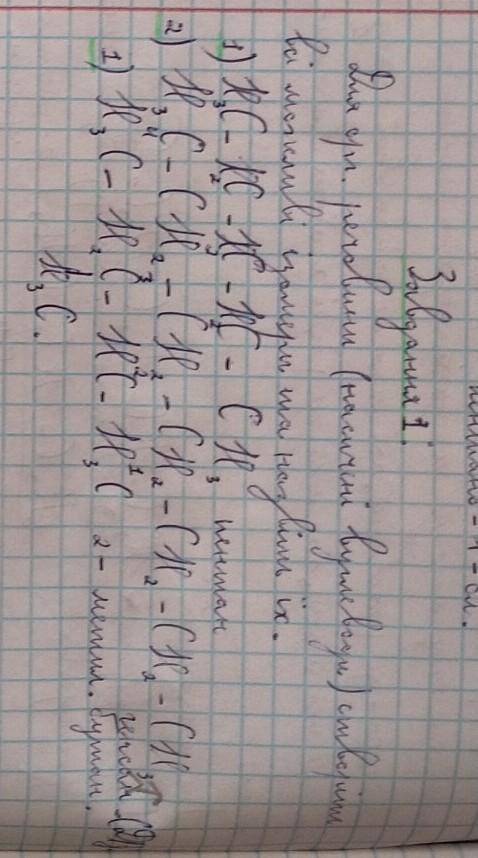 пентано - 1 - ол.
Завдання 1.
Для орг. речовини (насичені вуглеводи) створіть
всі можливі ізомери та назвіть їх.
1) H3C - H2C - H2C - H2C - CH3 пентан
2) H3C - CH2 - CH2 - CH2 - CH2 - CH2 - CH3
гепсан
1) H3C - H2C - HC - H3C 2 - метил. бутан.
H3C.